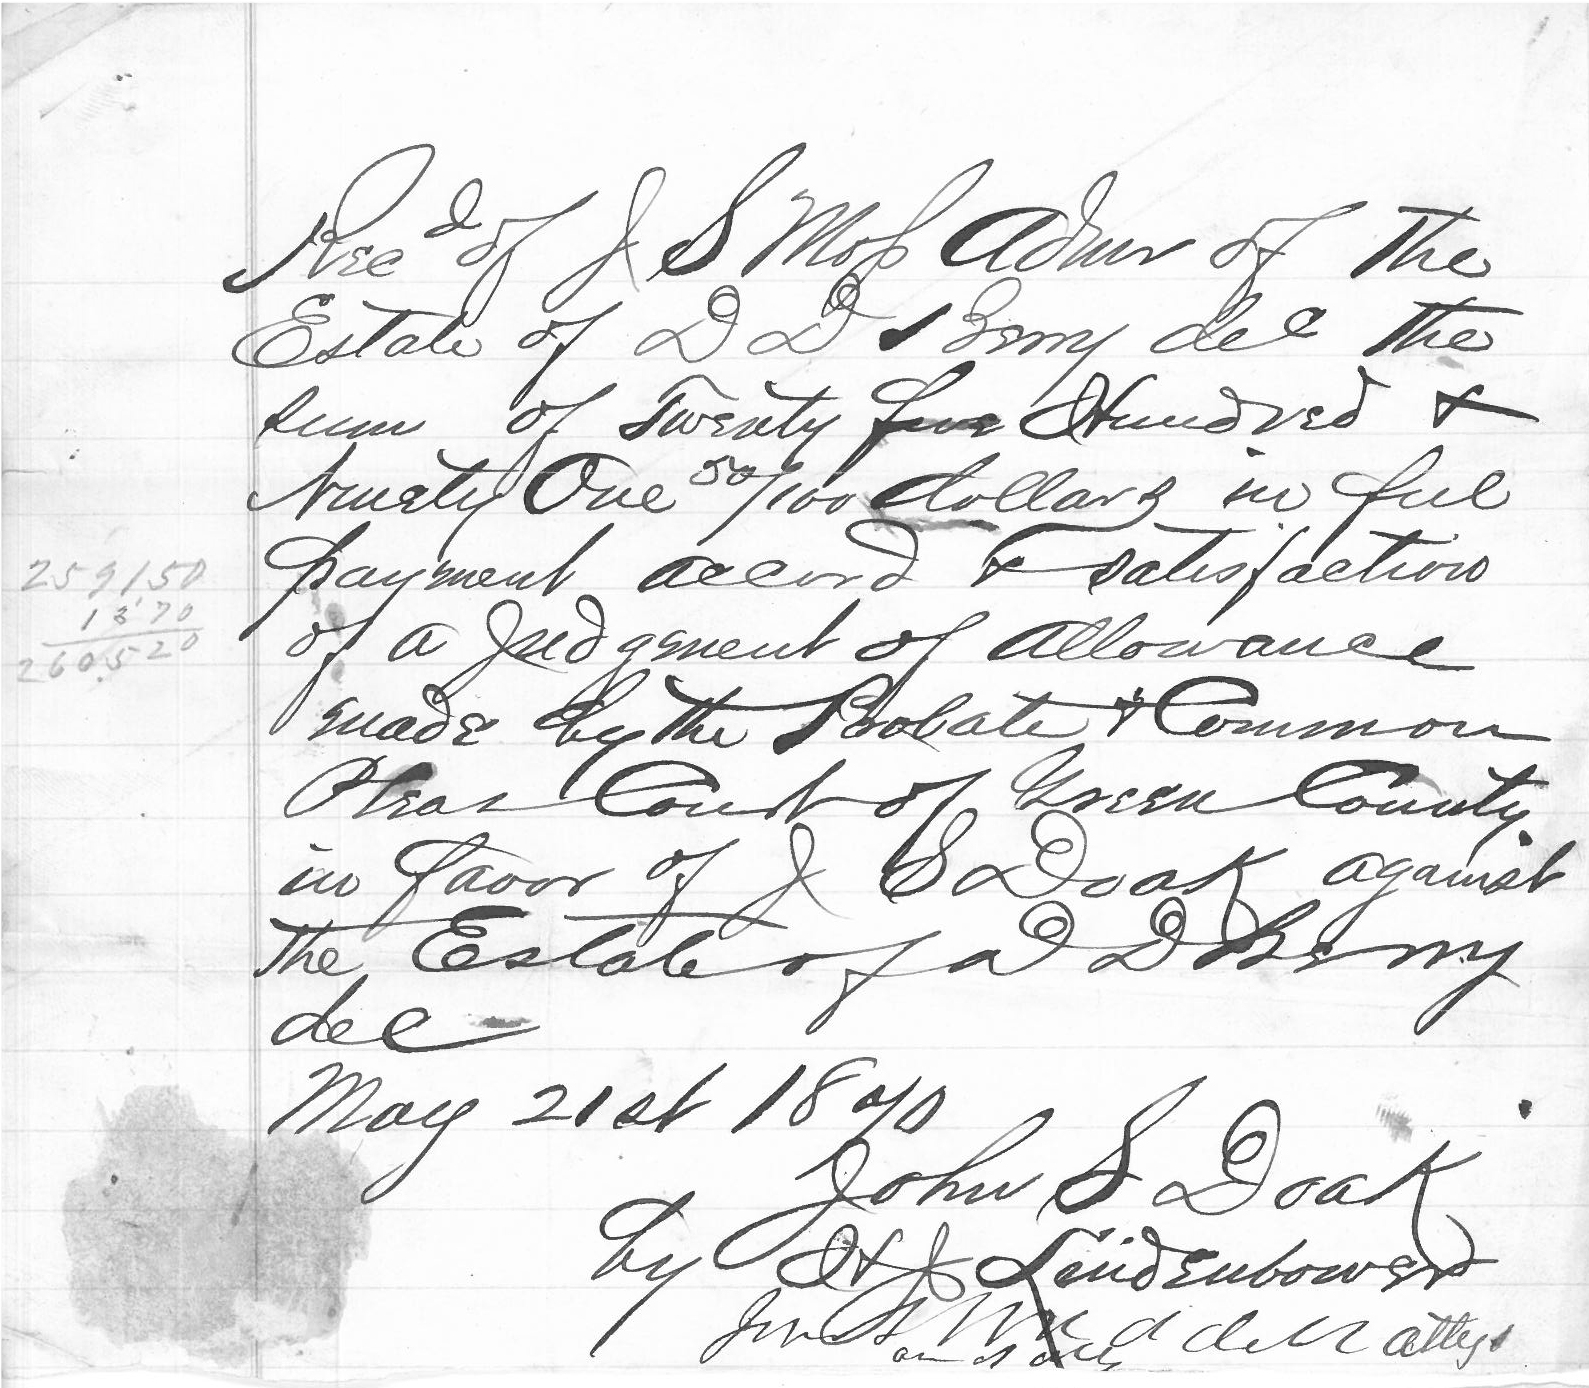 Recd of J S Moss Admr of the
Estate of D D Berry dec the
sum of Twenty five Hundred &
Ninety One 50/100 dollars in ful
payment accord & satisfaction
of a Judgment of allowance
made by the Probate & Common
Pleas Court of Green County
in favor of J S Doak against
the Estate of D D Berry
dec
May 21st 1870
John S Doak
by H J Lindenbower
attys
2591.50
13.70
2605.20